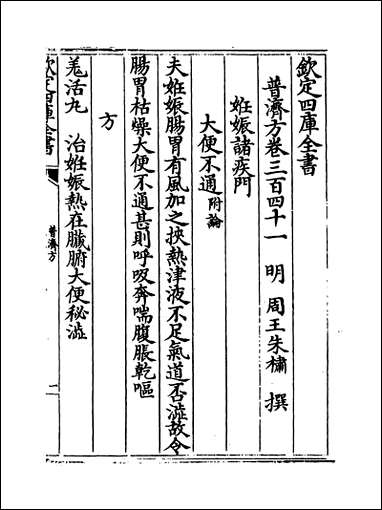 欽定四庫全書
普濟方卷三百四十一 明 周王朱橚 撰
姙娠諸疾門
大便不通附論
夫姙娠腸胃有風加之挾熱津液不足氣道否澁故令
腸胃枯燥大便不通甚則呼吸奔喘腹脹乾嘔
方
羗活丸 治姙娠熱在臟腑大便秘澁
欽定四庫全書
普濟方